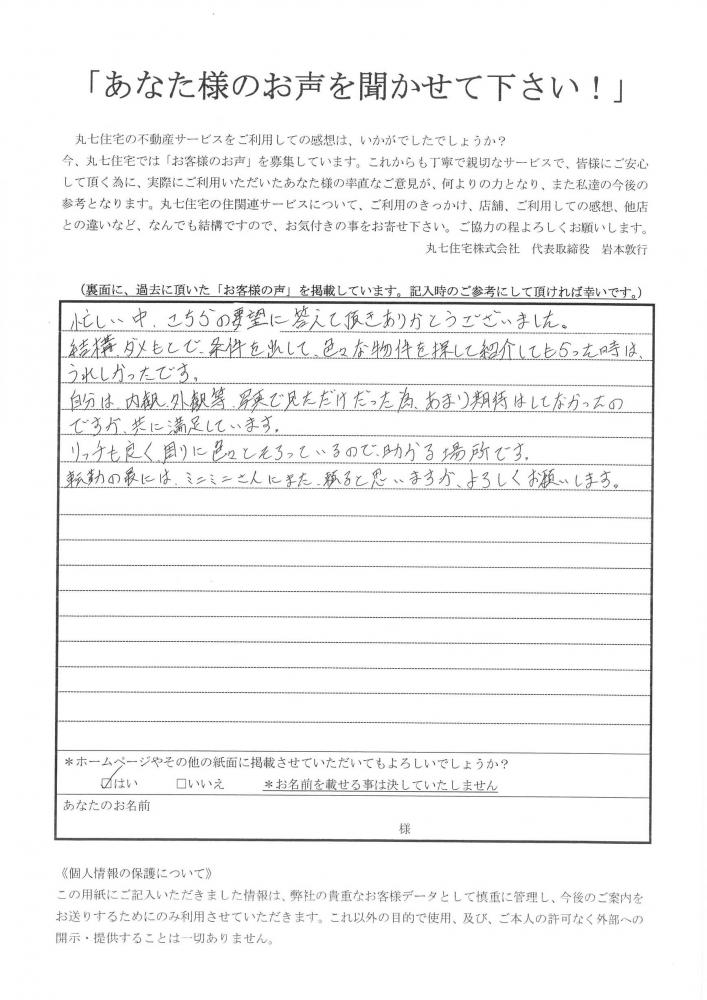 「あなた様のお声を聞かせて下さい！」
丸七住宅の不動産サービスをご利用しての感想は、いかがでしたでしょうか？
今、丸七住宅では「お客様のお声」を募集しています。これからも丁寧で親切なサービスで、皆様にご安心
して頂く為に、実際にご利用いただいたあなた様の率直なご意見が、何よりの力となり、また私達の今後の
参考となります。丸七住宅の住関連サービスについて、ご利用のきっかけ、店舗、ご利用しての感想、他店
との違いなど、なんでも結構ですので、お気付きの事をお寄せ下さい。ご協力の程よろしくお願いします。
丸七住宅株式会社　代表取締役　岩本敦行
（裏面に、過去に頂いた「お客様の声」を掲載しています。記入時のご参考にして頂ければ幸いです。）
忙しい中、こちらの要望に答えて頂きありがとうございました。
結構、ダメもとで、条件を出して、色々な物件を探して紹介してもらった時は、
うれしかったです。
自分は、内観、外観等、写真で見ただけだった為、あまり期待はしてなかったの
ですが、共に満足しています。
リッチも良く、周りに色々とそろっているので、助かる場所です。
転勤の最には、ミニミニさんにまた、頼ると思いますが、よろしくお願いします。
＊ホームページやその他の紙面に掲載させていただいてもよろしいでしょうか？
☑はい　□いいえ　＊お名前を載せる事は決していたしません
あなたのお名前
様
《個人情報の保護について》
この用紙にご記入いただきました情報は、弊社の貴重なお客様データとして慎重に管理し、今後のご案内を
お送りするためにのみ利用させていただきます。これ以外の目的で使用、及び、ご本人の許可なく外部への
開示・提供することは一切ありません。